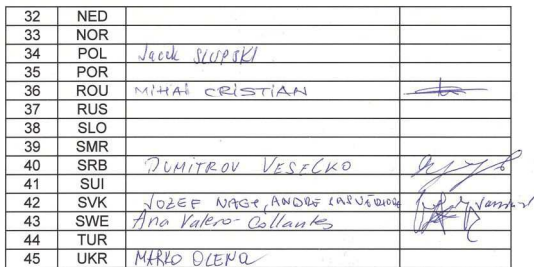 32 NED
33 NOR
34 POL Jacek SLUPSKI
35 POR
36 ROU MIHAI CRISTIAN
37 RUS
38 SLO
39 SMR
40 SRB DUMITROV VESELKO
41 SUI
42 SVK JOZEF NAGY, ANDRE
43 SWE Ana Valero-Collantes
44 TUR
45 UKR MARKO OLENA